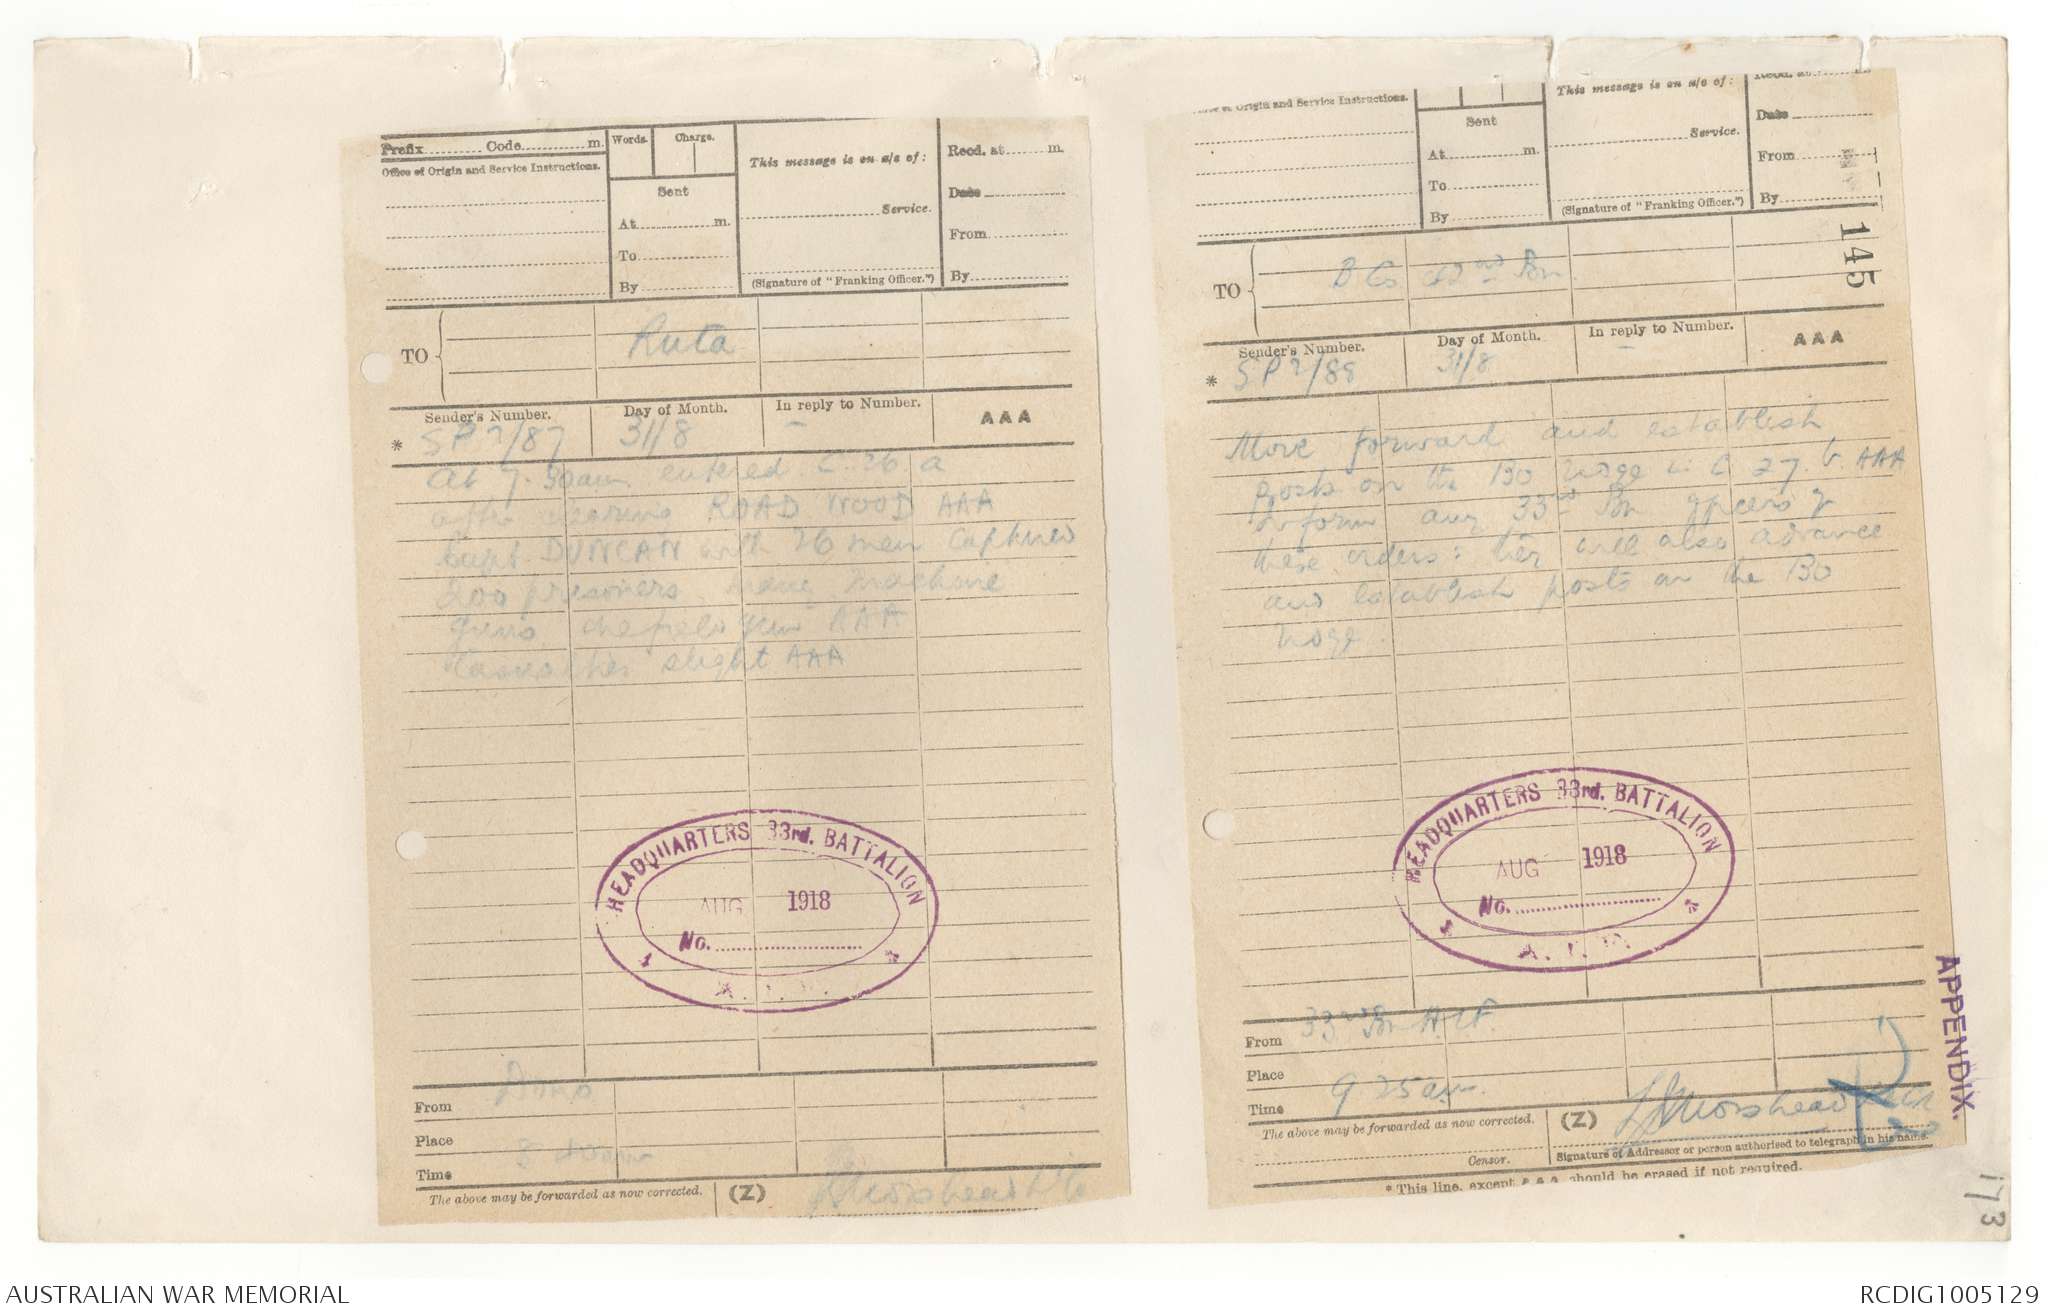 Prefix Code m.
Words.
Charge.
Office of Origin and Service Instructions.
Sent
At m.
To
By
This message is on a/c of :
Service.
(Signature of "Franking Officer.")
Recd. at m.
Date
From
By
TO
Ruta
Sender's Number.
Day of Month.
In reply to Number.
AAA
* SP 7/87
31/8
-
At 7.30am entered C.26 a
after clearing ROAD WOOD AAA
Capt DUNCAN with 26 men captured
200 prisoners many machine
guns one field gun AAA
Casualties slight AAA
HEADQUARTERS 33rd. BATTALION
AUG 1918
No.
A.I.F.
From
Place
Time
8 40am
The above may be forwarded as now corrected.
(Z)
LJMorshead Lt Co
Office of Origin and Service Instructions.
Sent
At m.
To
By
This message is on a/c of :
Service.
(Signature of "Franking Officer.")
Recd. at
Date
From
By
145
TO
B Co 42nd Bn.
Sender's Number.
Day of Month.
In reply to Number.
AAA
* SP 7/88
31/8
-
Move forward and establish
posts on the 130 ridge in C 27. b. AAA
Inform any 33rd Bn officers of
these orders: they will also advance
and establish posts on the 130
ridge.
HEADQUARTERS 33rd. BATTALION
AUG 1918
No.
A.I.F.
From
33rd Bn A.I.F.
Place
Time
9.25am.
The above may be forwarded as now corrected.
(Z)
LJMorshead
Censor.
Signature of Addressor or person authorised to telegraph in his name.
* This line, except AAA, should be erased if not required.
APPENDIX.
173
AUSTRALIAN WAR MEMORIAL
RCDIG1005129